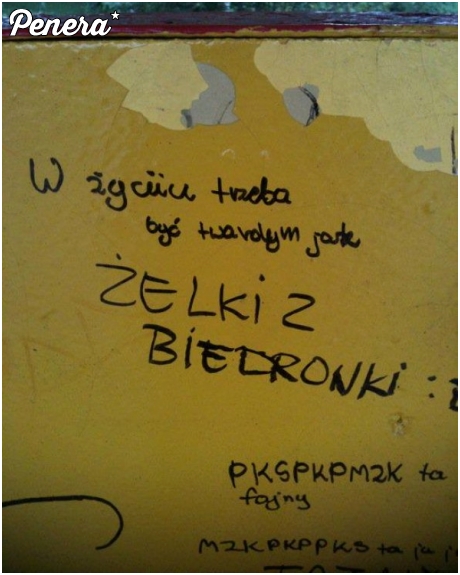 Penera*
W życiu trzeba
być twardym jak
ŻELKI Z
BIEDRONKI :
PKSPKPMZK ta
fajny
MZKPKPPKS ta ja